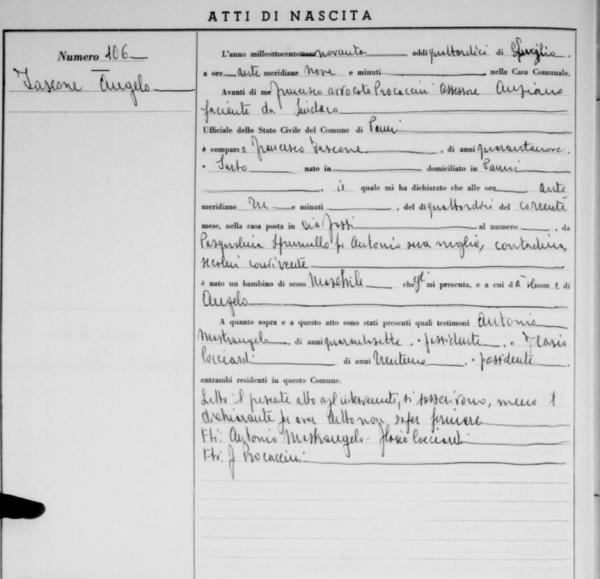 ATTI DI NASCITA
Numero 106
Iascone Angelo
L'anno milleottocento novanta addì quattordici di Luglio
a ore ante meridiane nove e minuti , nella Casa Comunale.
Avanti di me Francesco avvocato Procaccini Assessore Anziano
facente da Sindaco
Ufficiale dello Stato Civile del Comune di Panni
è comparso Francesco Iascone , di anni quarantanove
Sarto nato in domiciliato in Panni
, il quale mi ha dichiarato che alle ore ante
meridiane tre e minuti , del dì quattordici del corrente
mese, nella casa posta in Via al numero , da
Pasqualina fu Antonio sua moglie, contadina,
seco lui convivente
è nato un bambino di sesso Maschile che mi presenta, e a cui dà il nome di
Angelo
A quanto sopra e a questo atto sono stati presenti quali testimoni Antonio
Mastrangelo di anni quarantasette possidente e Flavio
Cocciardi di anni possidente
entrambi residenti in questo Comune.
Letto il presente atto agl'intervenuti, si sono sottoscritti, meno il
dichiarante per aver detto non saper firmare
Fti: Antonio Mastrangelo - Flavio Cocciardi
Fti: F Procaccini